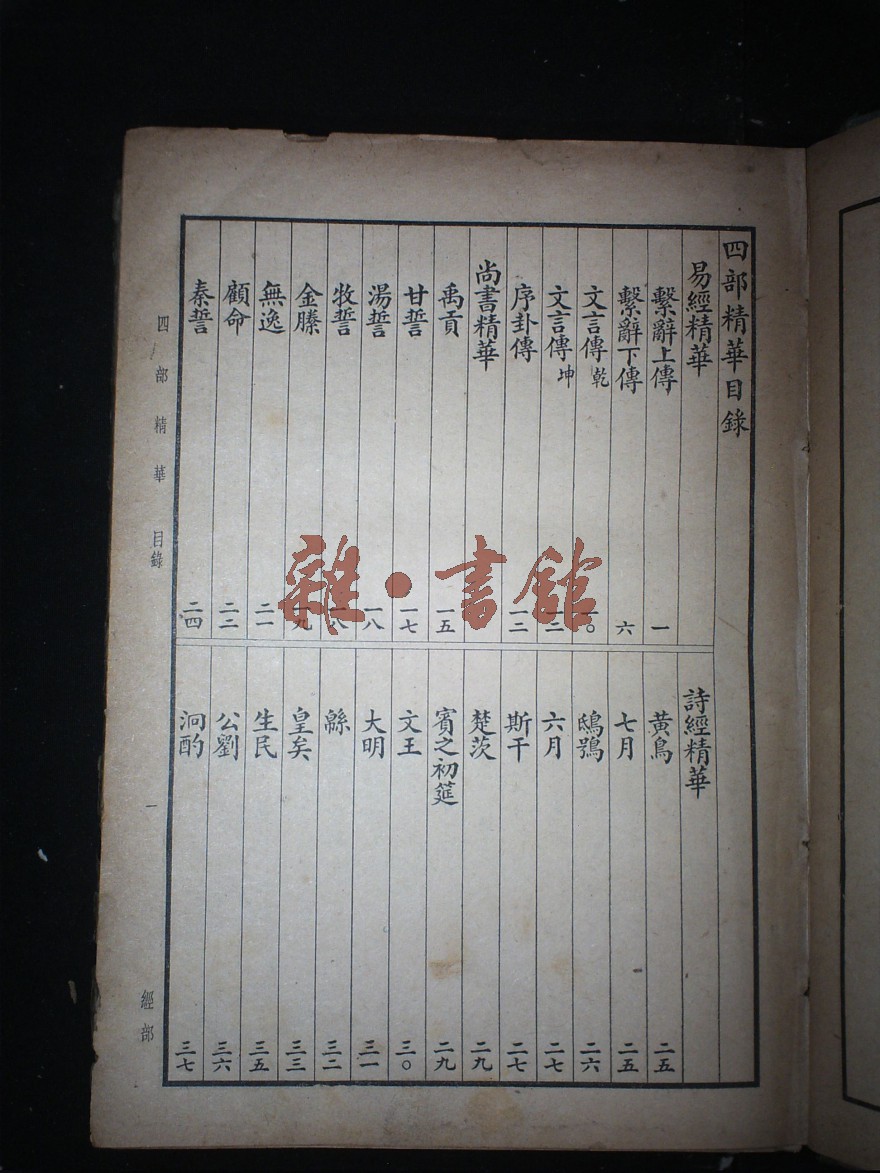 四部精華目錄
易經精華
繫辭上傳 一
繫辭下傳 六
文言傳 乾 一〇
文言傳 坤 一二
序卦傳 一二
尚書精華
禹貢 一五
甘誓 一七
湯誓 一八
牧誓 一八
金縢 一九
無逸 二一
顧命 二二
秦誓 二四
詩經精華
黃鳥 二五
七月 二五
鴟鴞 二六
六月 二七
斯干 二七
楚茨 二九
賓之初筵 二九
文王 三〇
大明 三一
緜 三二
皇矣 三三
生民 三五
公劉 三六
泂酌 三七
四部精華 目錄 一 經部
雜·書館